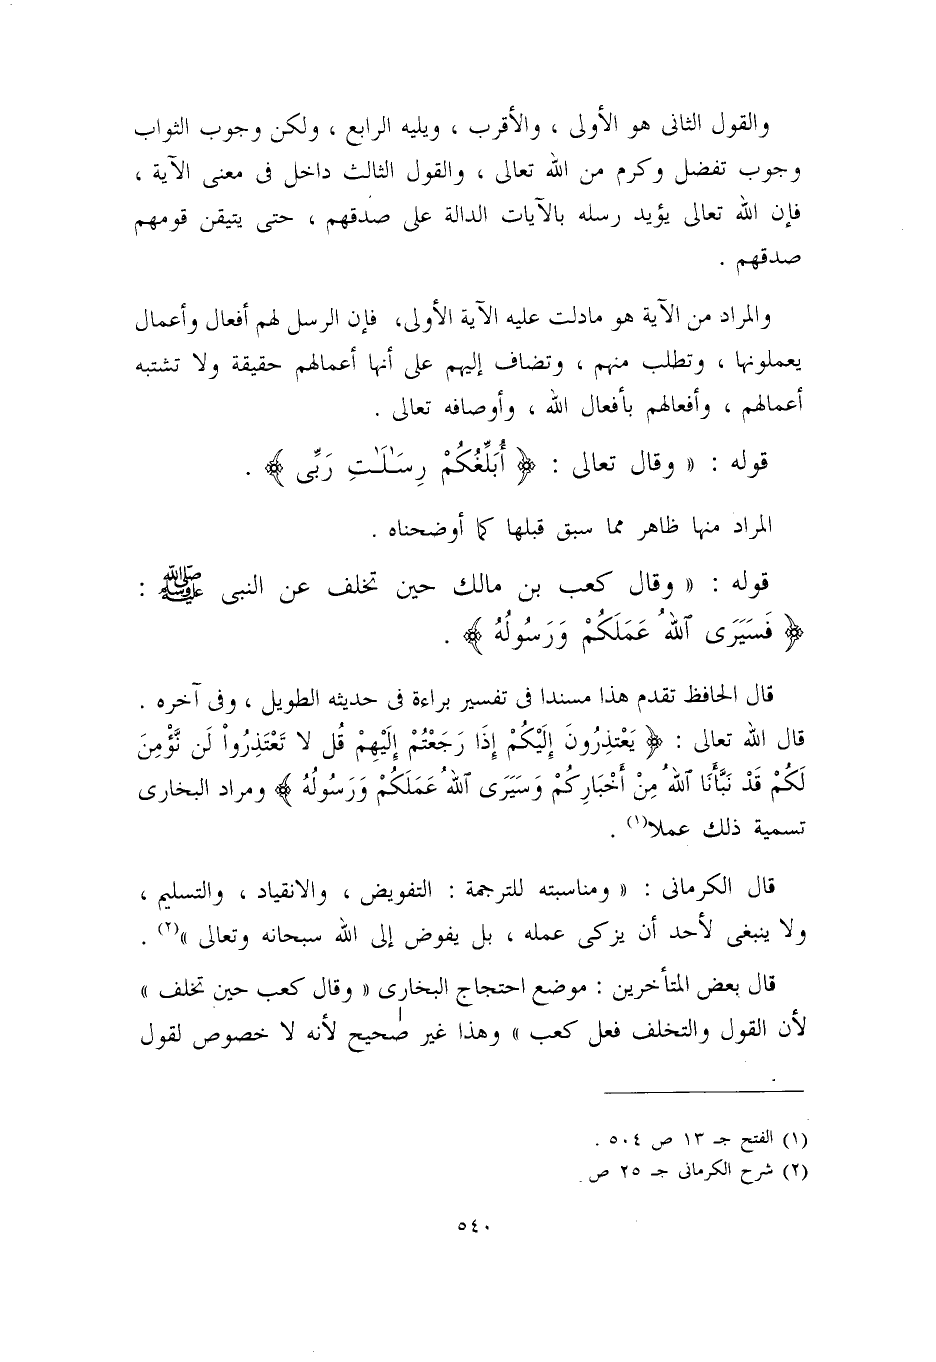 والقول الثانى هو الأولى ، والأقرب ، ويليه الرابع ، ولكن وجوب الثواب
وجوب تفضل وكرم من الله تعالى ، والقول الثالث داخل فى معنى الآية ،
فإن الله تعالى يؤيد رسله بالآيات الدالة على صدقهم ، حتى يتيقن قومهم
صدقهم .
والمراد من الآية هو مادلت عليه الآية الأولى، فإن الرسل لهم أفعال وأعمال
يعملونها ، وتطلب منهم ، وتضاف إليهم على أنها أعمالهم حقيقة ولا تشتبه
أعمالهم ، وأفعالهم بأفعال الله ، وأوصافه تعالى .
قوله : « وقال تعالى : ﴿ أُبَلِّغُكُمْ رِسَـٰلَـٰتِ رَبِّى ﴾ .
المراد منها ظاهر مما سبق قبلها كما أوضحناه .
قوله : « وقال كعب بن مالك حين تخلف عن النبى ﷺ :
﴿ فَسَيَرَى ٱللهُ عَمَلَكُمْ وَرَسُولُهُ ﴾ .
قال الحافظ تقدم هذا مسندا فى تفسير براءة فى حديثه الطويل ، وفى آخره .
قال الله تعالى : ﴿ يَعْتَذِرُونَ إِلَيْكُمْ إِذَا رَجَعْتُمْ إِلَيْهِمْ قُل لا تَعْتَذِرُواْ لَن نُّؤْمِنَ
لَكُمْ قَدْ نَبَّأَنَا ٱللهُ مِنْ أَخْبَارِكُمْ وَسَيَرَى ٱللهُ عَمَلَكُمْ وَرَسُولُهُ ﴾ ومراد البخارى
تسمية ذلك عملا(١) .
قال الكرمانى : « ومناسبته للترجمة : التفويض ، والانقياد ، والتسليم ،
ولا ينبغى لأحد أن يزكى عمله ، بل يفوض إلى الله سبحانه وتعالى »(٢) .
قال بعض المتأخرين : موضع احتجاج البخارى « وقال كعب حين تخلف »
لأن القول والتخلف فعل كعب » وهذا غير صحيح لأنه لا خصوص لقول
(١) الفتح جـ ١٣ ص ٥٠٤ .
(٢) شرح الكرمانى جـ ٢٥ ص .
٥٤٠